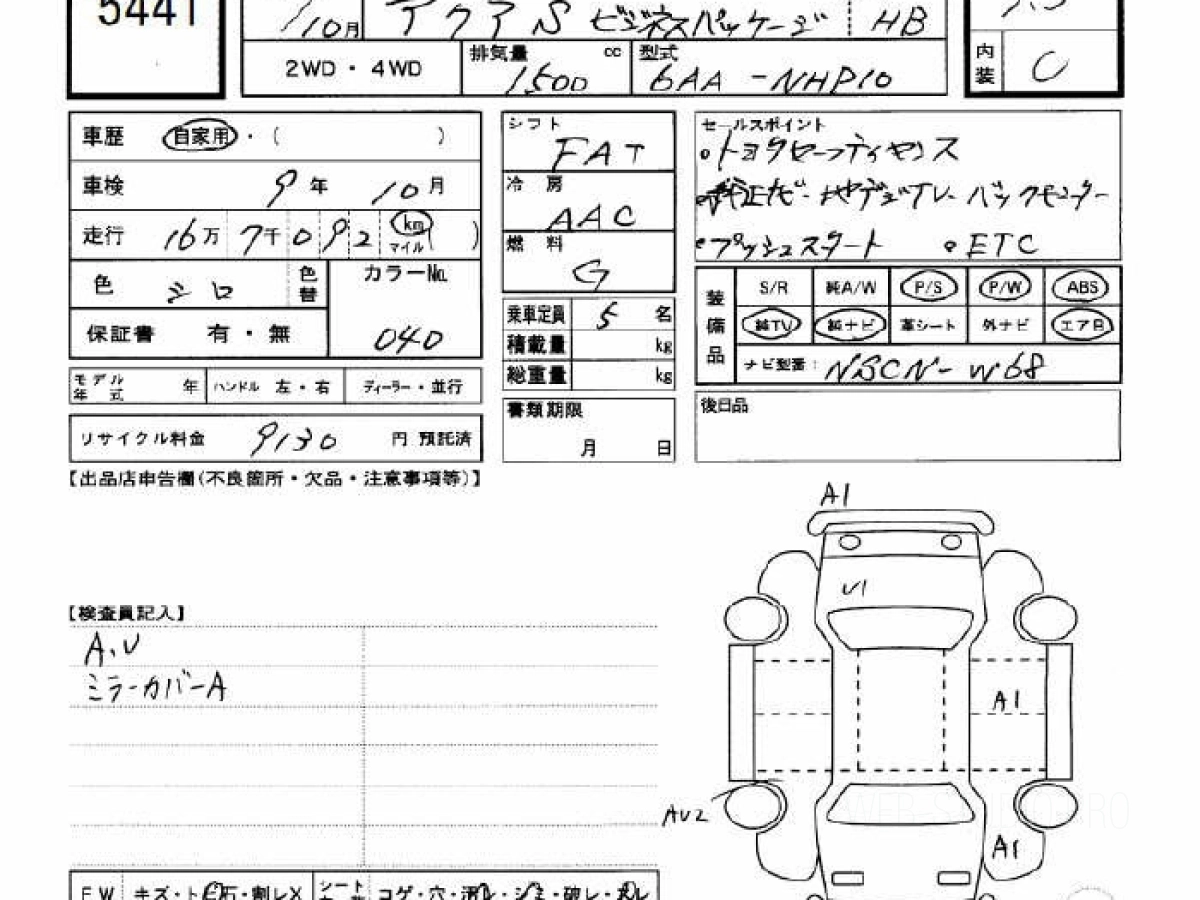 5441
10月 アクア S ビジネスパッケージ HB
2WD・4WD 排気量 1500 cc 型式 6AA-NHP10
内装 C
車歴 自家用・( )
車検 9年 10月
走行 16万 7千 0 9 2 km マイル ( )
色 シロ 色替 カラー№ 040
保証書 有・無
モデル年式 年 ハンドル 左・右 ディーラー・並行
リサイクル料金 9130 円 預託済
シフト FAT
冷房 AAC
燃料 G
乗車定員 5 名
積載量 kg
総重量 kg
書類期限
月 日
セールスポイント
・トヨタセーフティセンス
・純正ナビ・地デジTV・バックモニター
・プッシュスタート ・ETC
装備品 S/R 純A/W P/S P/W ABS
純TV 純ナビ 革シート 外ナビ エアB
ナビ型番: NSCN-W68
後日品
【出品店申告欄(不良箇所・欠品・注意事項等)】
【検査員記入】
A、U
ミラーカバーA
A1
U1
A1
AU2
A1
FW キズ・ト石・割レX シート コゲ・穴・シミ・破レ